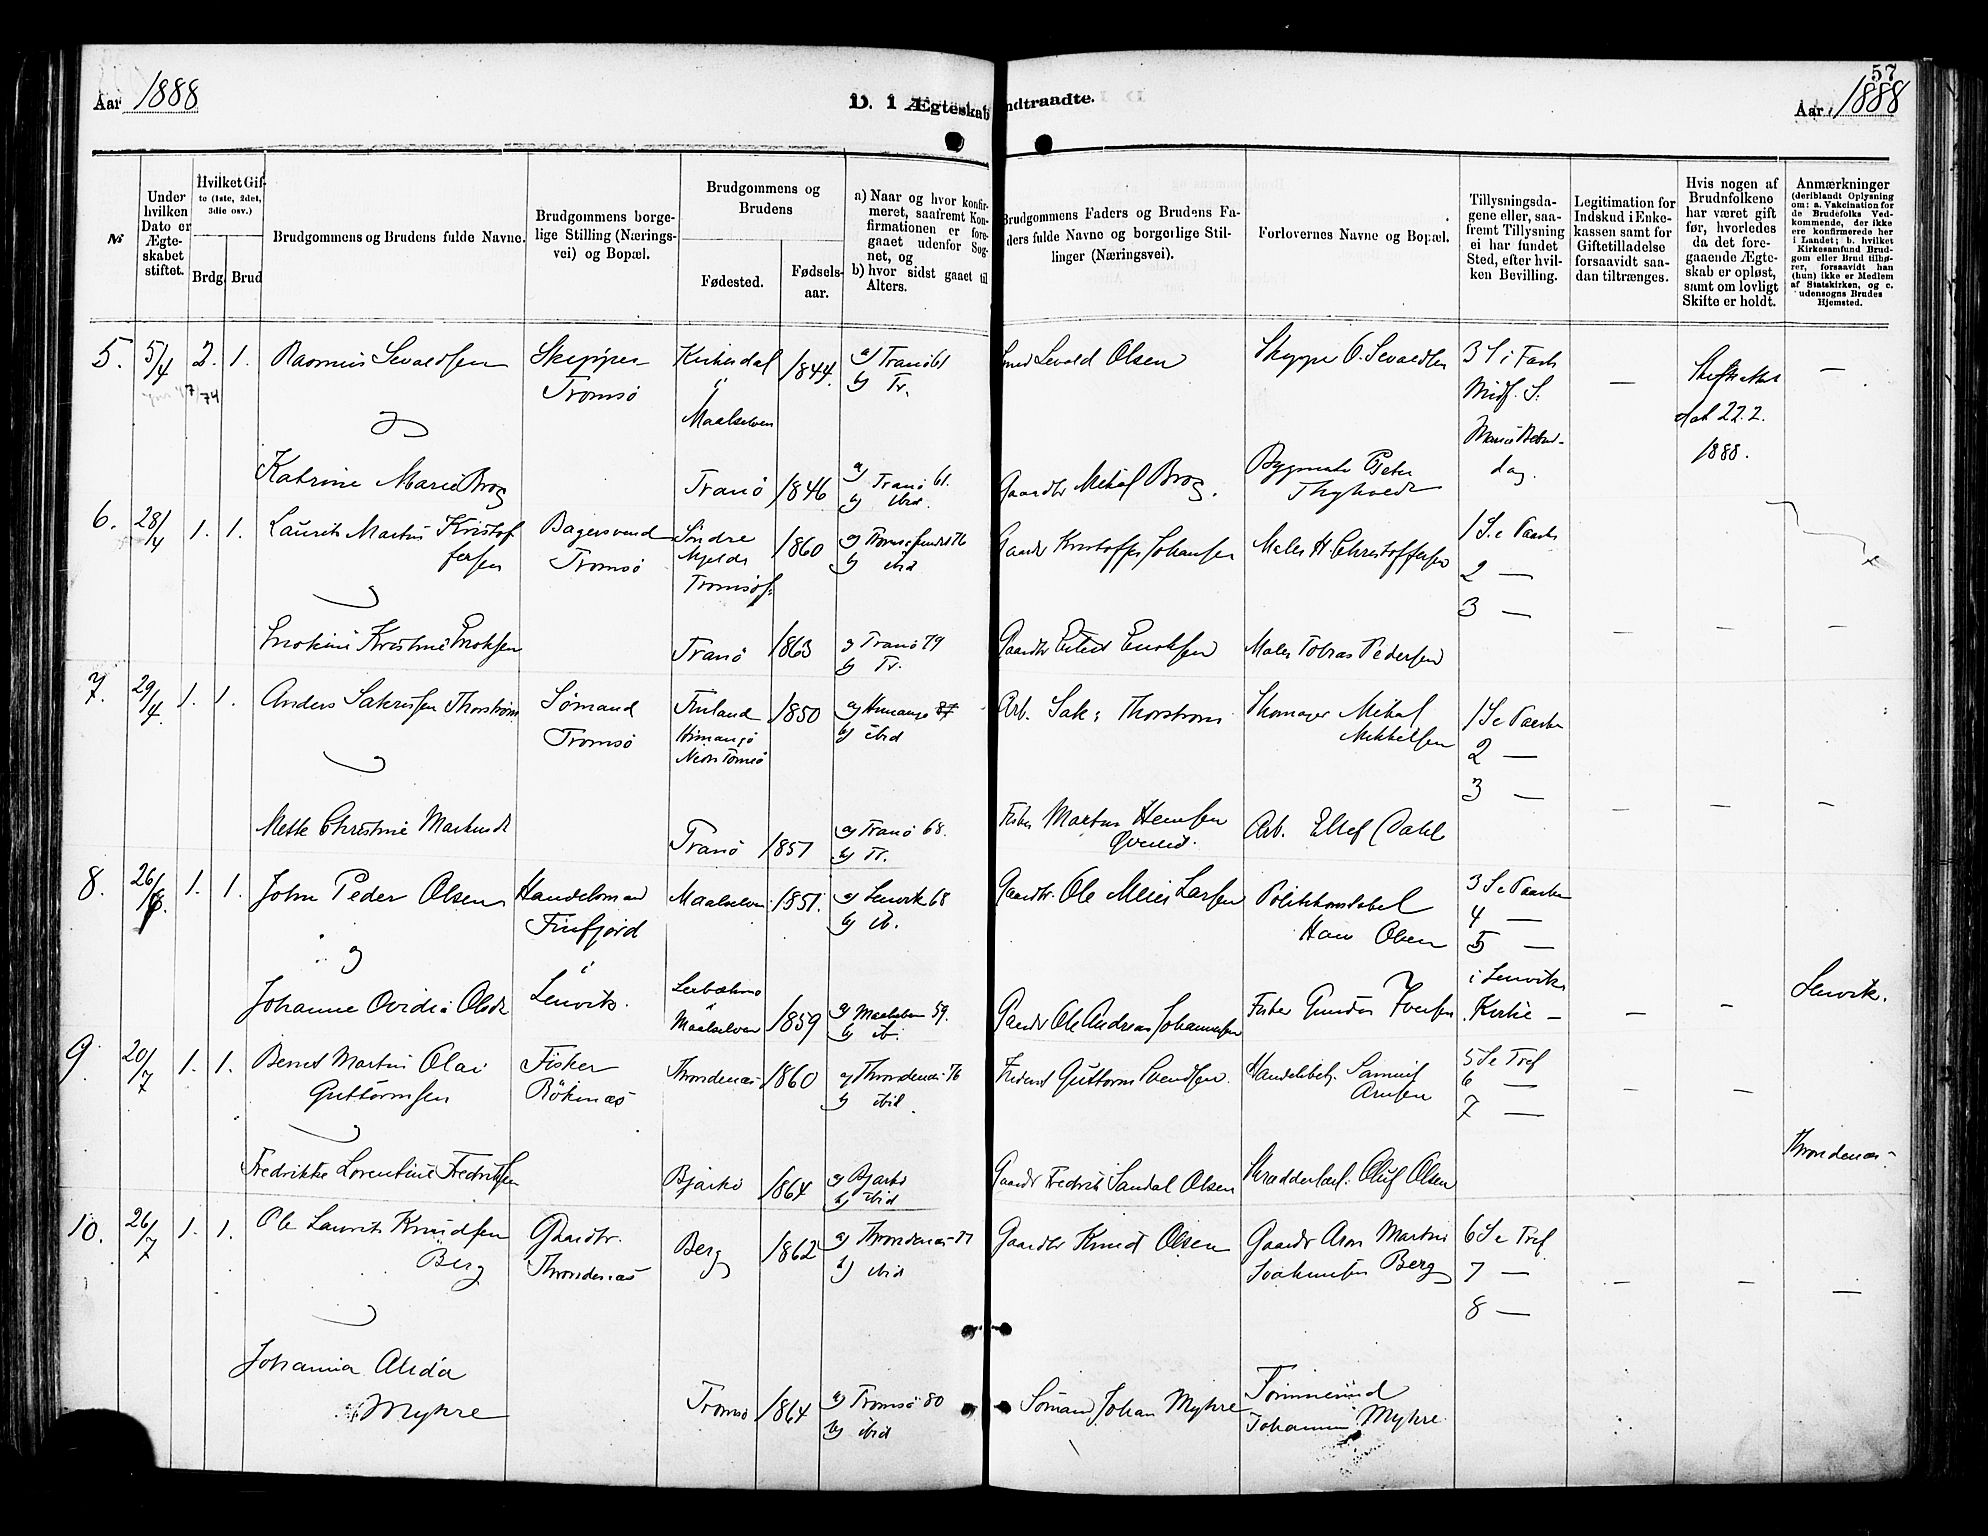 57
Aar 1888
D. I Ægteskab
indtraadte.
Aar 1888
№
Under hvilken Dato er Ægteskabet stiftet.
Hvilket Gifte (1ste, 2det, 3die osv.)
Brdg.
Brud
Brudgommens og Brudens fulde Navne.
Brudgommens borgelige Stilling (Næringsvei) og Bopæl.
Brudgommens og Brudens
Fødested.
Fødselsaar.
a) Naar og hvor konfirmeret, saafremt Konfirmationen er foregaaet udenfor Sognet, og
b) hvor sidst gaaet til Alters.
Brudgommens Faders og Brudens Faders fulde Navne og borgerlige Stillinger (Næringsvei).
Forlovernes Navne og Bopæl.
Tillysningsdagene eller, saafremt Tillysning ei har fundet Sted, efter hvilken Bevilling.
Legitimation for Indskud i Enkekassen samt for Giftetilladelse forsaavidt saadan tiltrænges.
Hvis nogen af Brudnfolkene har været gift før, hvorledes da det foregaaende Ægteskab er opløst, samt om lovligt Skifte er holdt.
Anmærkninger
(deriblandt Oplysning om: a. Vakcination for de Brudefolks Vedkommende, der ikke ere konfirmerede her i Landet; b. hvilket Kirkesamfund Brudgom eller Brud tilhører, forsaavidt han (hun) ikke er Medlem af Statskirken, og c. udensogns Brudes Hjemsted.
5. 5/4 2. 1. Rasmus Sevaldsen Skipper Kirkesdal 1844. a) Tranö 61 Sevald Olsen O. Sevaldsen 3 S i Faste —
Tromsö b) Tr. Midf. S.
og Maalselven dat 22.2.
Katrine Marie Brog Tranö 1846 a) Tranö 61. Gaardbr Mikal Brog. Peter dag 1888.
b) ibid.
6. 28/4 1. 1. Laurits Martin Kristof Bagersvend Söndre 1860 b) ibid Johansen Maler H Christoffersen 1 S. e Paaske
fersen Tromsö 2 —
Tromsös. 3 —
Kristine Enoksen Tranö 1863 a) Tranö 79 Gaardbr Enoksen Maler Tobias Pedersen — — —
b) Tr.
7. 29/4. 1. 1. Anders Sakrissen Thorström Sömand Finland 1850 a) Himango Arb. Sak: Thorström Skomager Mikal 1 S e Paaske
Tromsö Himango b) ibid Mikkelsen 2 —
3 —
Mette Christine Martinsdr Tranö 1851 a) Tranö 68. Martin Hansen Arb. Ellef Dahl — — —
b) Tr.
8. 26/ 1. 1. John Peder Olsen Handelsmand Maalselven 1851. a) Lenvik 68 Gaardbr. Ole Meier Larsen Politikonstabel 3 S e Paaske
Finfjord b) ib. Hans Olsen 4 —
og 5 —
Johanne Ovidia Olsdr Lenvik. Maalselven 1859 a) Maalselven 59. Gaardbr Ole Andreas Johannesen Fisker Iversen i Lenvik Lenvik.
b) ib. Kirke — — —
9. 20/7 1. 1. Bernt Martin Olai Fisker Throndenæs 1860 a) Throndenæs 76 Guttorm Svendsen. Handelsbetj. Samuel 5 S e Tref
Guttormsen Rökenæs b) ibid. Arnsen 6 — — —
7 —
Fredrikke Lorentine Fredriksen Bjarkö 1864 a) Bjarkö Gaardbr Fredrik Sandal Olsen Oluf Olsen Throndenæs
b) ibid
10. 26/7 1. 1. Ole Laurits Knudsen Gaardbr. Berg 1862 a) Throndenæs 77 Gaardbr Knud Olsen Gaardbr Aron Martin 6 S e Tref
Berg Throndenæs b) ibid Joakimsen Berg 7 — — — —
8 —
Johanna Alida Tromsö 1864 a) Tromsö 80 Sömand Johan Myhre Tömmermand
Myhre b) ibid Johannes Myhre.